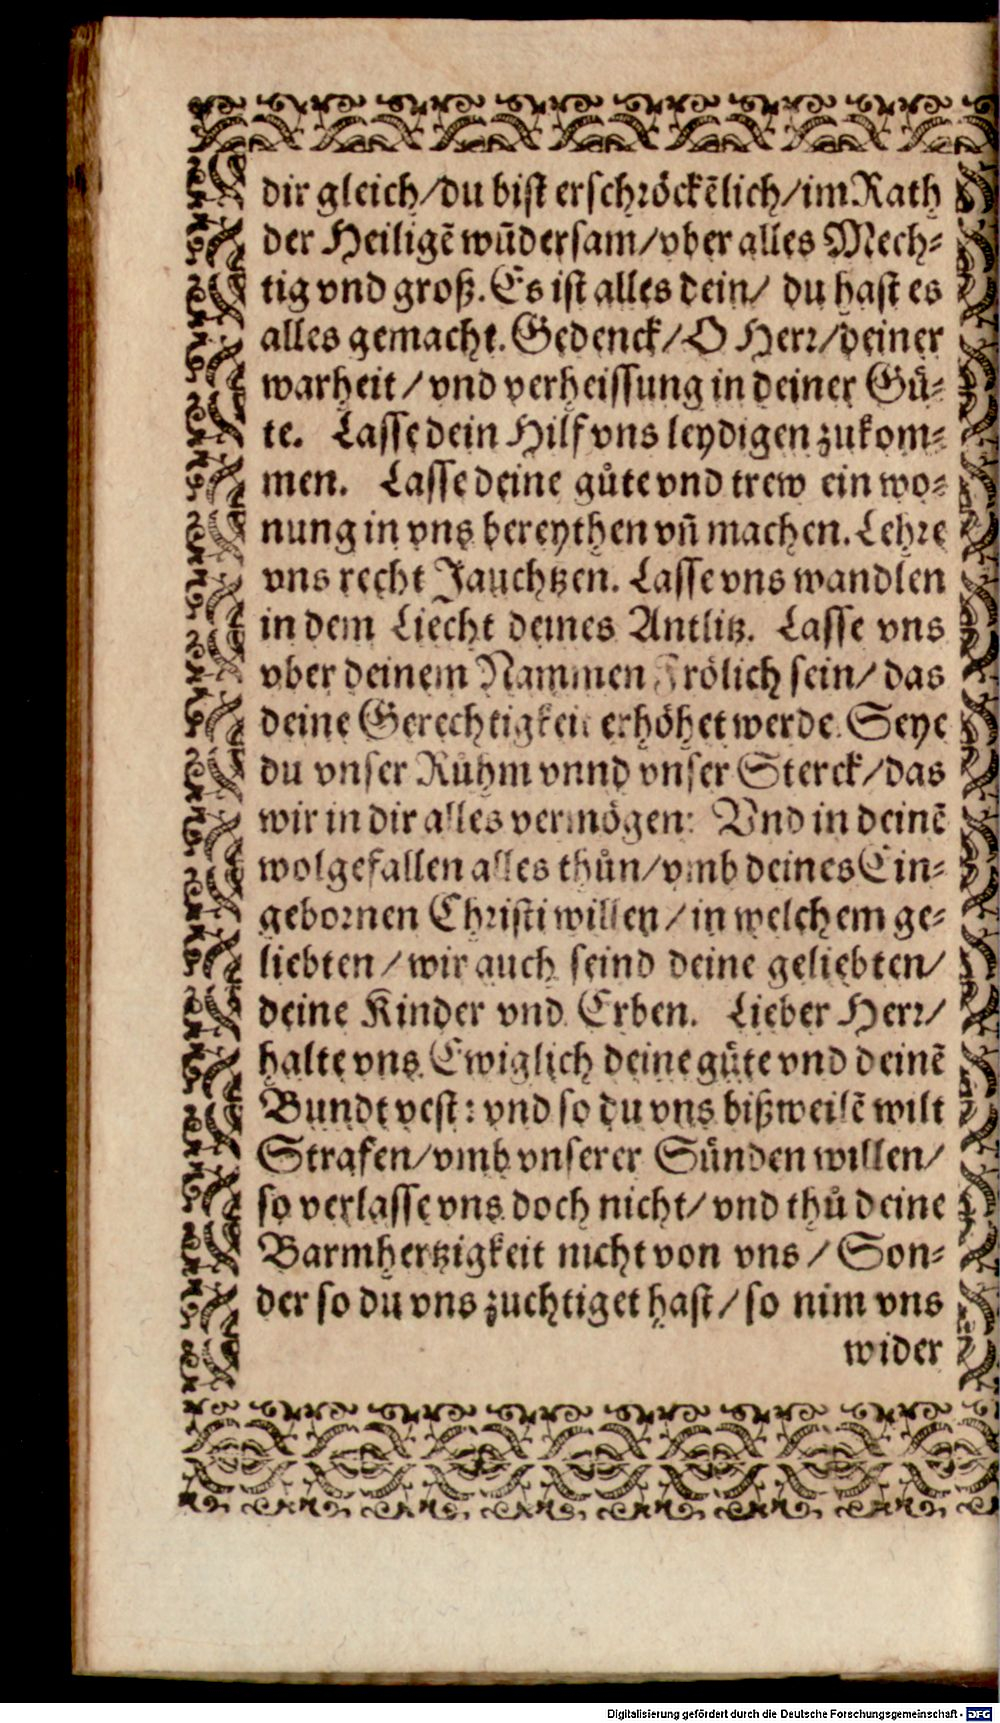 dir gleich/du bist erschröckēlich/im Rath
der Heiligē wūdersam/vber alles Mech⸗
tig vnd groß. Es ist alles dein/ du hast es
alles gemacht. Gedenck/O Herr/deiner
warheit/vnd verheissung in deiner Gü⸗
te. Lasse dein Hilf vns leydigen zukom⸗
men. Lasse deine güte vnd trew ein wo⸗
nung in vns bereythen vñ machen. Lehre
vns recht Jauchtzen. Lasse vns wandlen
in dem Liecht deines Antlitz. Lasse vns
vber deinem Nammen Frölich sein/ das
deine Gerechtigkeit erhöhet werde. Seye
du vnser Růhm vnnd vnser Sterck/das
wir in dir alles vermögen: Vnd in deinē
wolgefallen alles thůn/vmb deines Ein⸗
gebornen Christi willen/in welchem ge⸗
liebten/wir auch seind deine geliebten/
deine Kinder vnd Erben. Lieber Herr/
halte vns Ewiglich deine güte vnd deinē
Bundt vest: vnd so du vns bißweilē wilt
Strafen/vmb vnserer Sünden willen/
so verlasse vns doch nicht/vnd thů deine
Barmhertzigkeit nicht von vns/Son⸗
der so du vns zuchtiget hast/so nim vns
wider
Digitalisierung gefördert durch die Deutsche Forschungsgemeinschaft - DFG